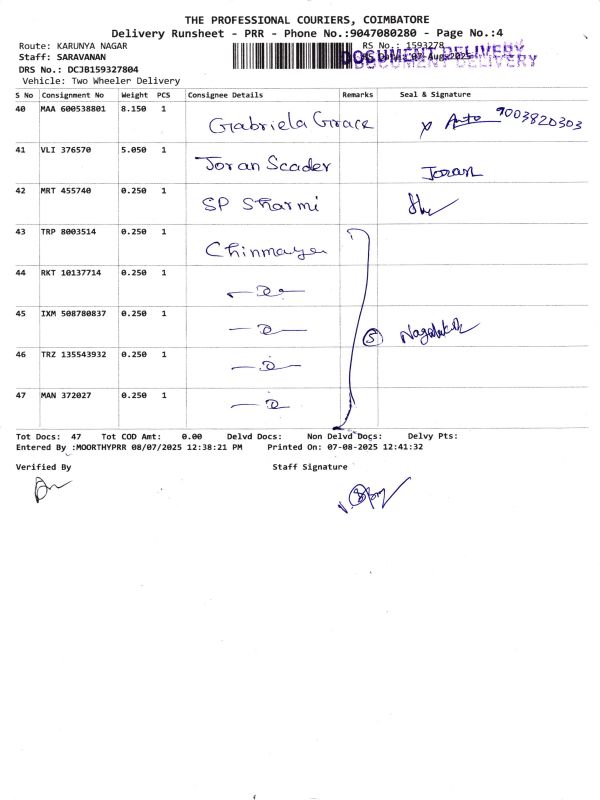 THE PROFESSIONAL COURIERS, COIMBATORE
Delivery Runsheet - PRR - Phone No.:9047080280 - Page No.:4
Route: KARUNYA NAGAR RS No.: 1593278
Staff: SARAVANAN 07-Aug-2025
DOCUMENT DELIVERY
DOCUMENT DELIVERY
DRS No.: DCJB159327804
Vehicle: Two Wheeler Delivery
S No Consignment No Weight PCS Consignee Details Remarks Seal & Signature
40 MAA 600538801 8.150 1 Gabriela Grace x Auto 9003820303
41 VLI 376570 5.050 1 Joran Scader Joran
42 MRT 455740 0.250 1 SP Sharmi
43 TRP 8003514 0.250 1 Chinmaya
44 RKT 10137714 0.250 1
45 IXM 508780837 0.250 1 5
46 TRZ 135543932 0.250 1
47 MAN 372027 0.250 1
Tot Docs: 47 Tot COD Amt: 0.00 Delvd Docs: Non Delvd Docs: Delvy Pts:
Entered By :MOORTHYPRR 08/07/2025 12:38:21 PM Printed On: 07-08-2025 12:41:32
Verified By Staff Signature